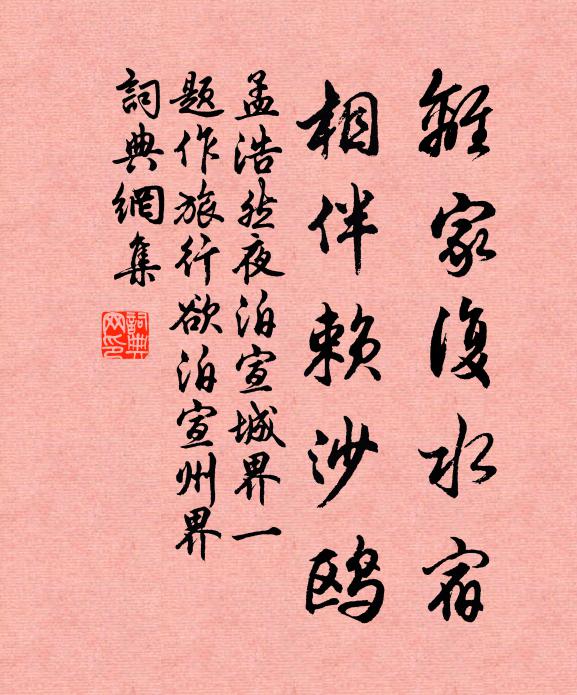 離家復水宿
相伴賴沙鷗
孟浩然夜泊宣城界一
题作旅行欲泊宣州界
詞典網集
詞典
网印